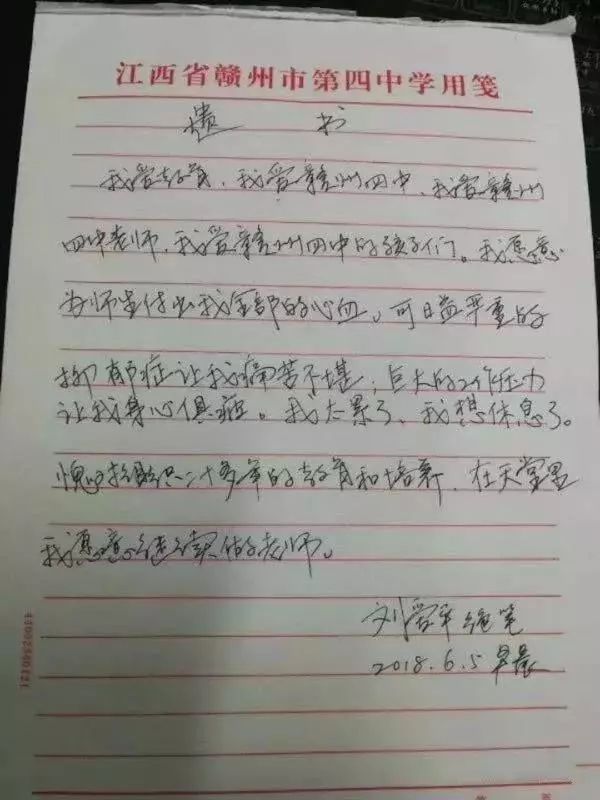 江西省赣州市第四中学用笺
遗书
我爱教育，我爱赣州四中，我爱赣州
四中老师，我爱赣州四中的孩子们。我愿意
为师生付出我全部的心血。可日益严重的
抑郁症让我痛苦不堪；巨大的工作压力
让我身心俱疲。我太累了，我想休息了。
愧对组织二十多年的教育和培养，在天堂里
我愿意继续做老师。
刘爱平绝笔
2018.6.5 早晨